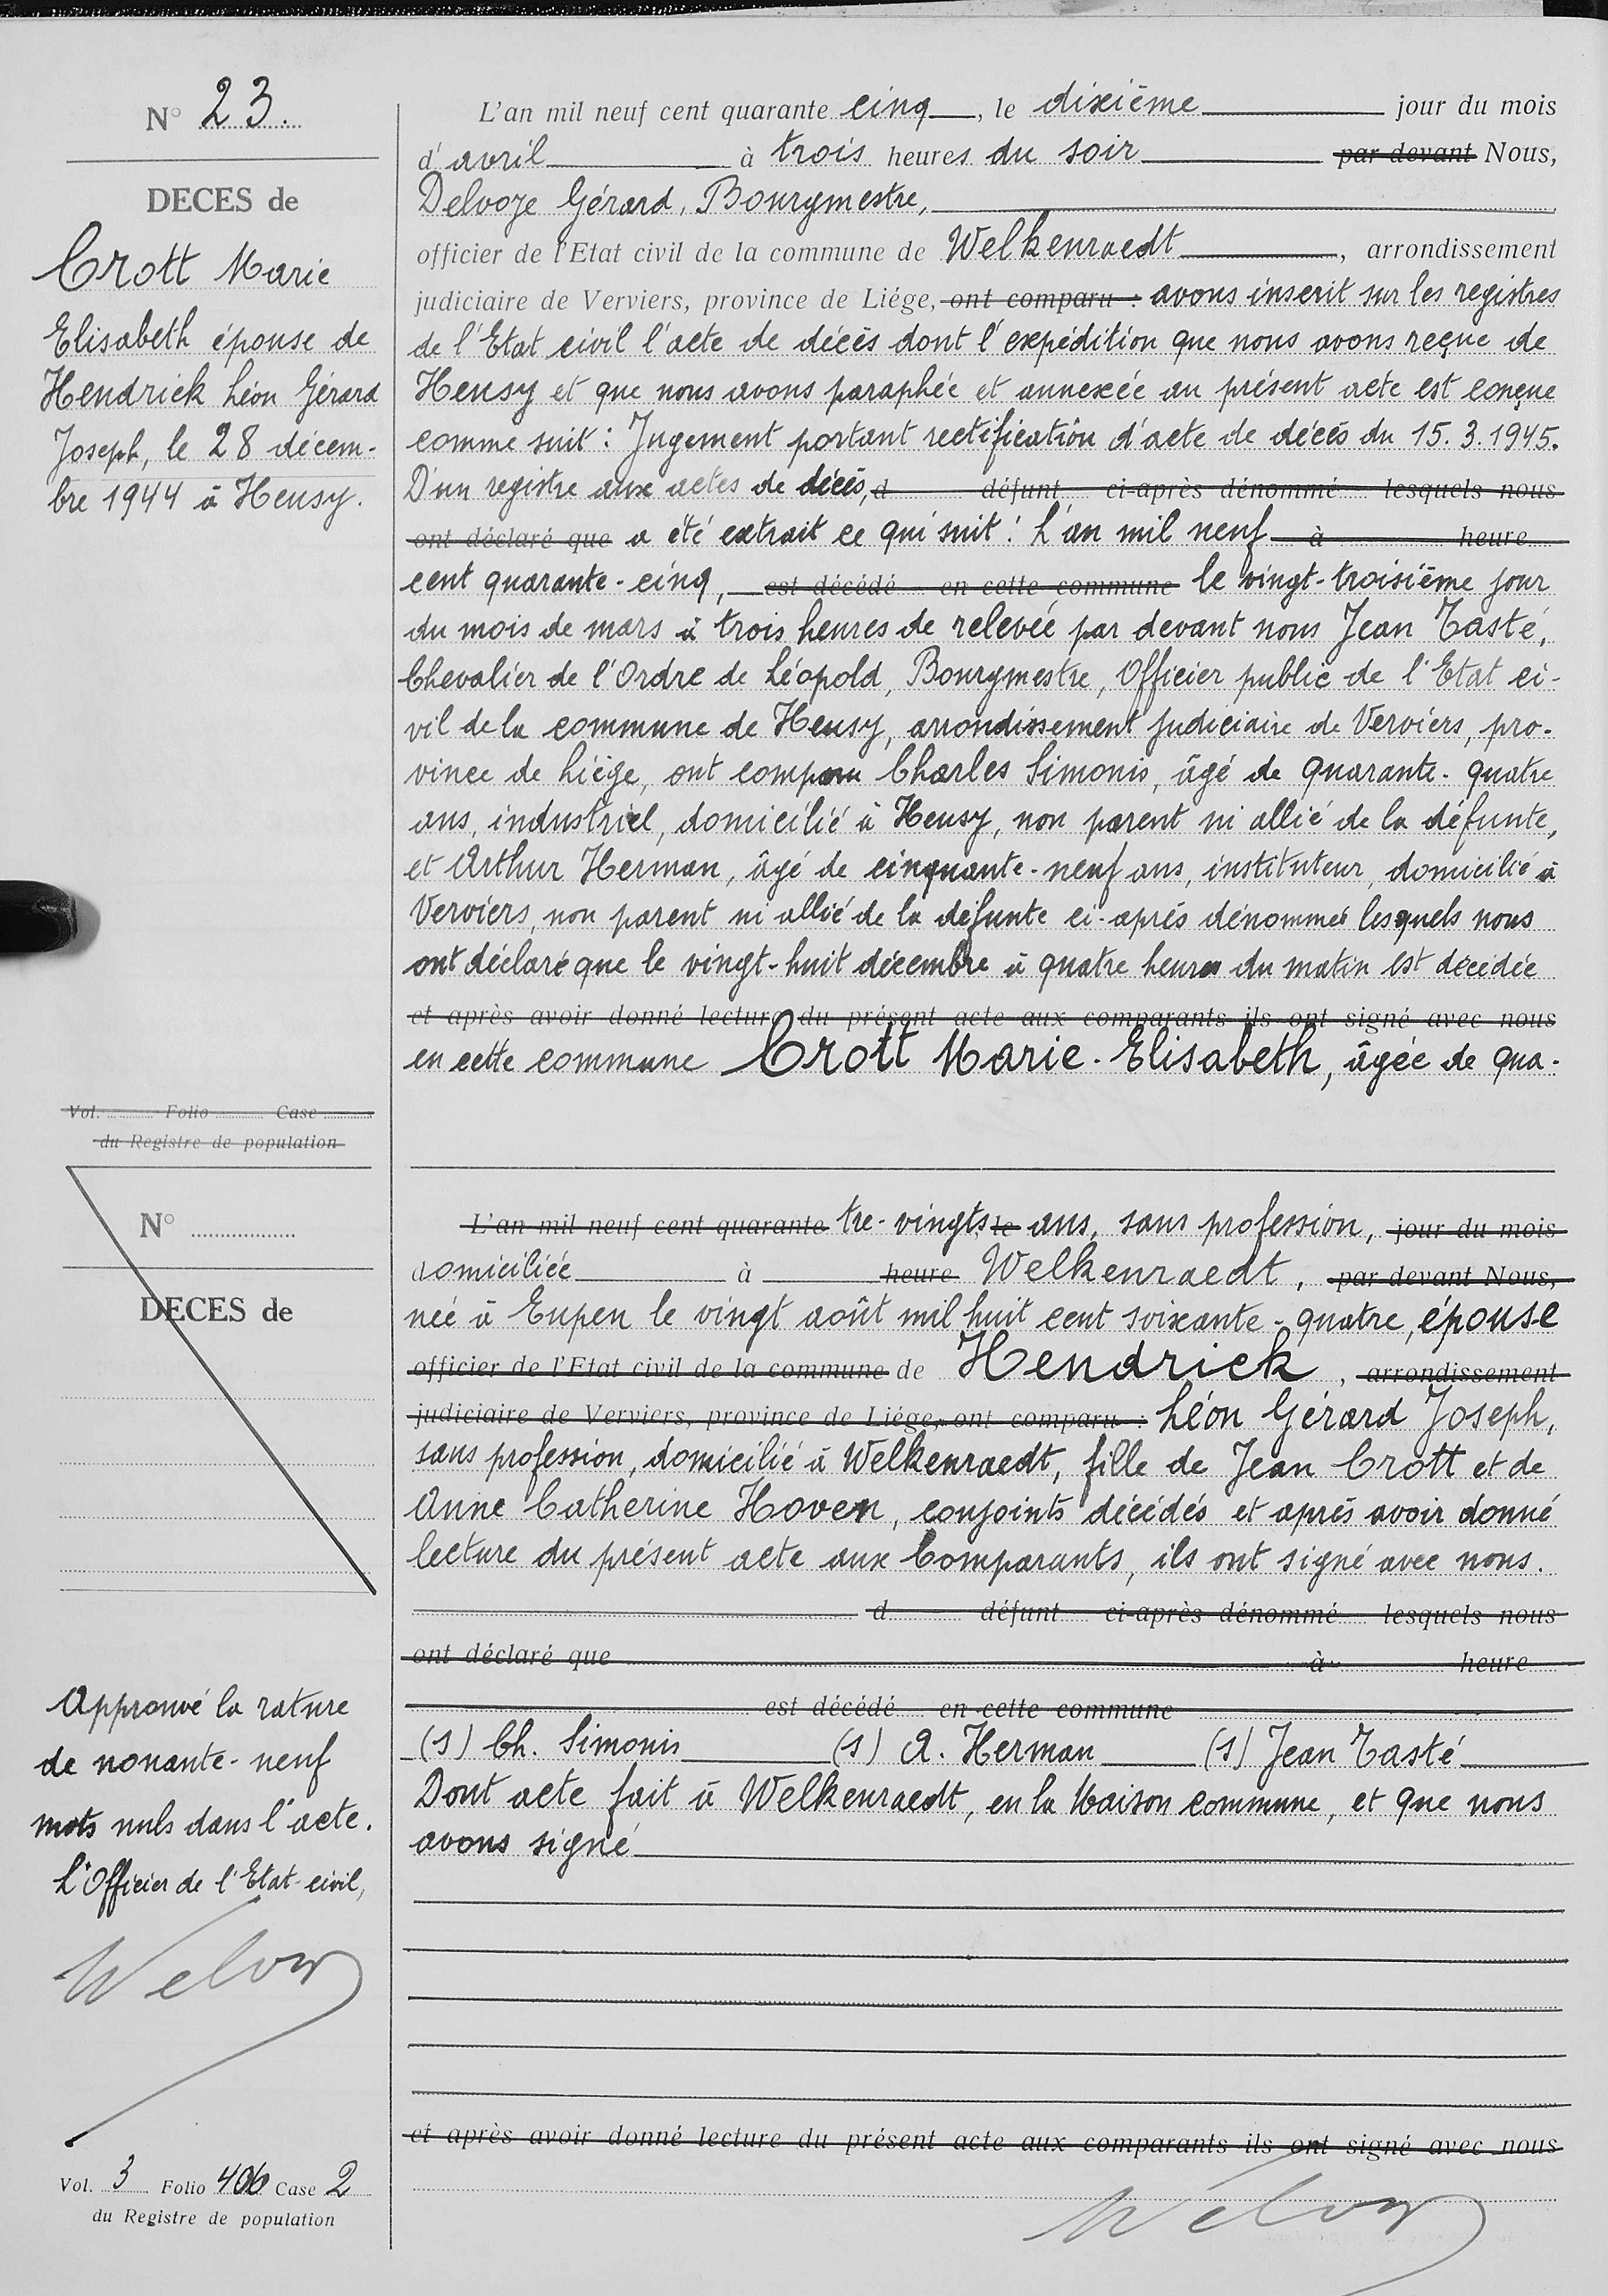 N° 23.
DECES de
Crott Marie
Elisabeth épouse de
Hendrick Léon Gérard
Joseph, le 28 décem-
bre 1944 à Heusy.
L'an mil neuf cent quarante cinq, le dixième jour du mois
d'avril à trois heures du soir par devant Nous,
Delvoye Gérard, Bourgmestre,
officier de l'Etat civil de la commune de Welkenraedt, arrondissement
judiciaire de Verviers, province de Liége, ont comparu : avons inscrit sur les registres
de l'Etat civil l'acte de décès dont l'expédition que nous avons reçue de
Heusy et que nous avons paraphée et annexée au présent acte est conçue
comme suit : Jugement portant rectification d'acte de décès du 15.3.1945.
D'un registre aux actes de décès, d défunt ci-après dénommé lesquels nous
ont déclaré que a été extrait ce qui suit : L'an mil neuf à heure
cent quarante-cinq, est décédé en cette commune le vingt-troisième jour
du mois de mars à trois heures de relevée par devant nous Jean Tasté,
Chevalier de l'Ordre de Léopold, Bourgmestre, Officier public de l'Etat ci-
vil de la commune de Heusy, arrondissement judiciaire de Verviers, pro-
vince de Liège, ont comparu Charles Simonis, âgé de quarante-quatre
ans, industriel, domicilié à Heusy, non parent ni allié de la défunte,
et Arthur Herman, âgé de cinquante-neuf ans, instituteur, domicilié à
Verviers, non parent ni allié de la défunte ci-après dénommée lesquels nous
ont déclaré que le vingt-huit décembre à quatre heures du matin est décédée
et après avoir donné lecture du présent acte aux comparants ils ont signé avec nous
en cette commune Crott Marie-Elisabeth, âgée de qua-
Vol. Folio Case
du Registre de population
N°
DECES de
L'an mil neuf cent quarante tre-vingts le ans, sans profession, jour du mois
domiciliée à heure Welkenraedt, par devant Nous,
née à Eupen le vingt août mil huit cent soixante-quatre, épouse
officier de l'Etat civil de la commune de Hendrick, arrondissement
judiciaire de Verviers, province de Liége, ont comparu : Léon Gérard Joseph,
sans profession, domicilié à Welkenraedt, fille de Jean Crott et de
Anne Catherine Hoven, conjoints décédés et après avoir donné
lecture du présent acte aux Comparants, ils ont signé avec nous.
d défunt ci-après dénommé lesquels nous
ont déclaré que à heure
est décédé en cette commune
(s) Ch. Simonis (s) A. Herman (s) Jean Tasté
Dont acte fait à Welkenraedt, en la Maison commune, et que nous
avons signé
Approuvé la rature
de nonante-neuf
mots nuls dans l'acte.
L'Officier de l'Etat-civil,
et après avoir donné lecture du présent acte aux comparants ils ont signé avec nous
Vol. 3 Folio 406 Case 2
du Registre de population